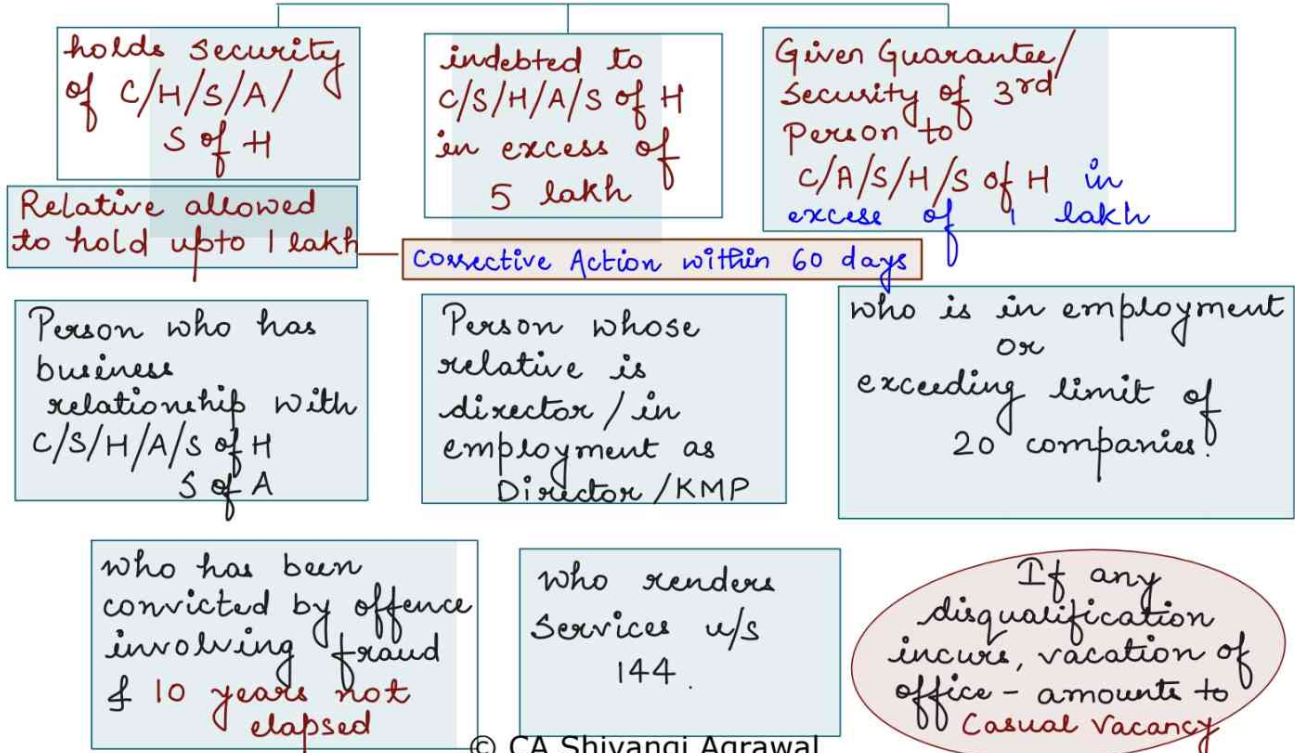 holds security
of C/H/S/A/
S of H
indebted to
C/S/H/A/S of H
in excess of
5 lakh
Given Guarantee/
Security of 3rd
Person to
C/A/S/H/S of H in
excess of 1 lakh
Relative allowed
to hold upto 1 lakh
Corrective Action within 60 days
Person who has
business
relationship with
C/S/H/A/S of H
S of A
Person whose
relative is
director / in
employment as
Director /KMP
who is in employment
or
exceeding limit of
20 companies.
who has been
convicted by offence
involving fraud
& 10 years not
elapsed
who renders
Services u/s
144.
If any
disqualification
incurs, vacation of
office - amounts to
Casual Vacancy
© CA Shivangi Agrawal